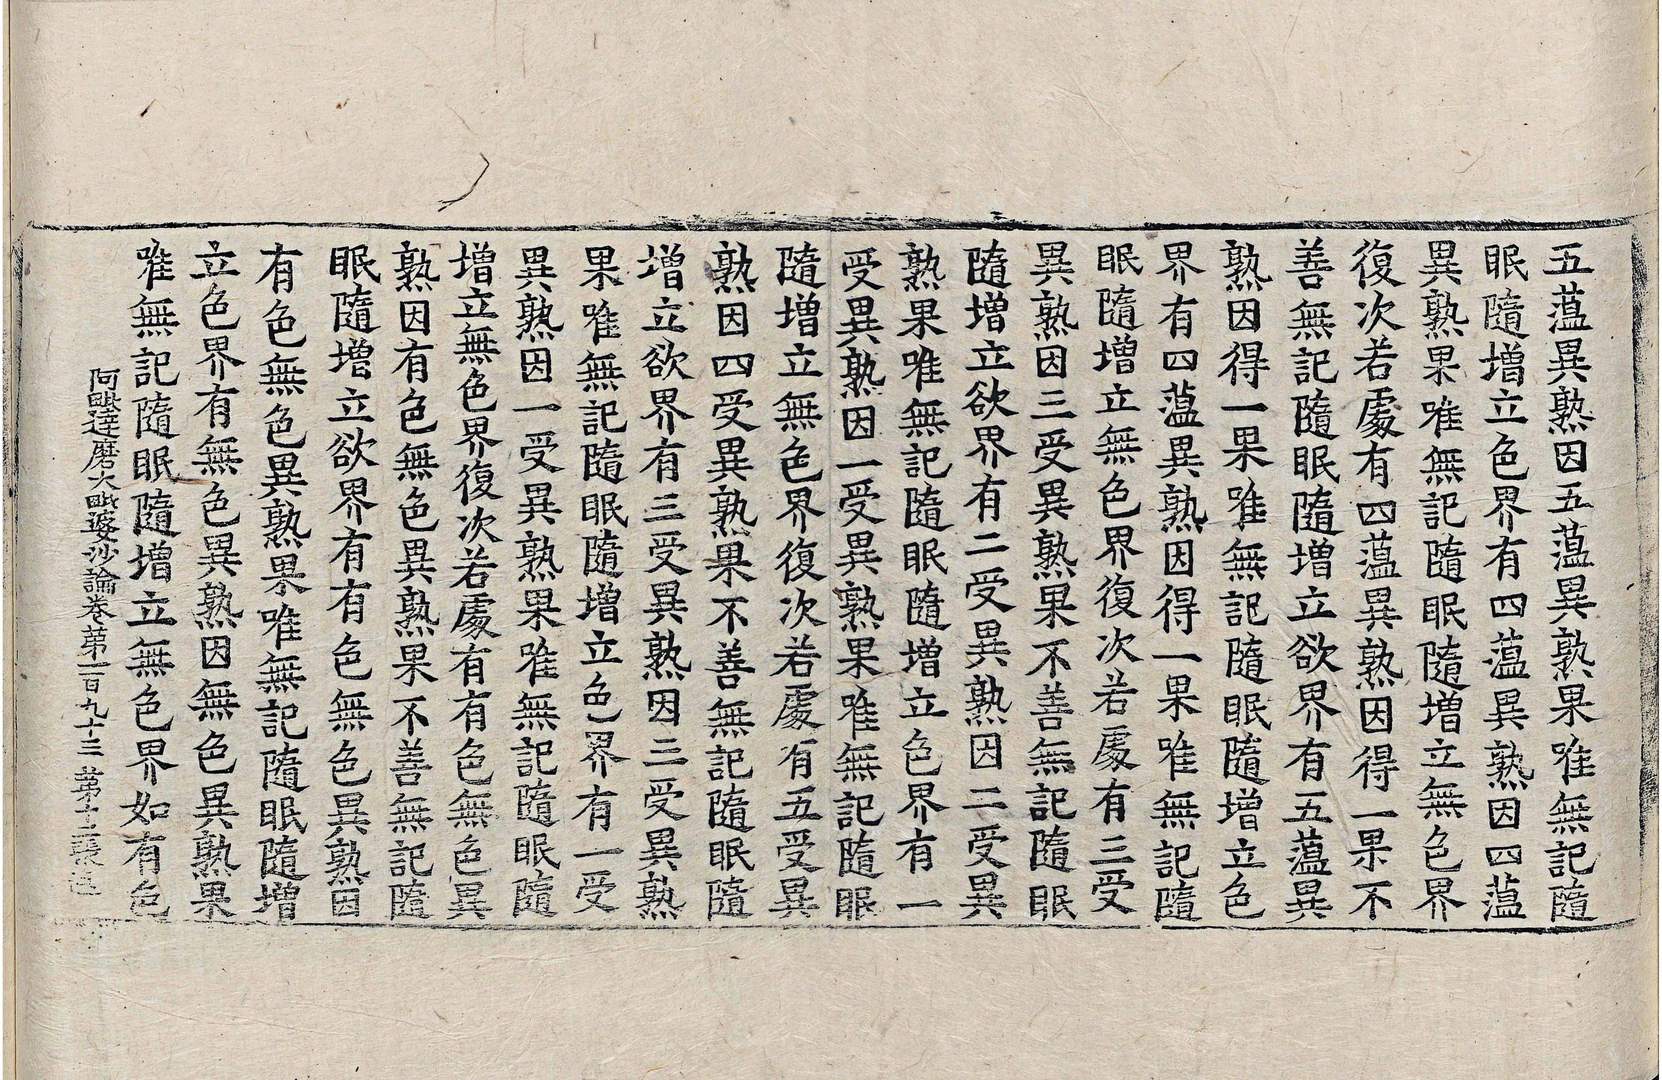 五蕰異熟因五蕰異熟果唯無記隨
眠隨增立色界有四蕰異熟因四蕰
異熟果唯無記隨眠隨增立無色界
復次若處有四蕰異熟因得一果不
善無記隨眠隨增立欲界有五蕰異
熟因得一果唯無記隨眠隨增立色
界有四蕰異熟因得一果唯無記隨
眠隨增立無色界復次若處有三受
異熟因三受異熟果不善無記隨眠
隨增立欲界有二受異熟因二受異
熟果唯無記隨眠隨增立色界有一
受異熟因一受異熟果唯無記隨眠
隨增立無色界復次若處有五受異
熟因四受異熟果不善無記隨眠隨
增立欲界有三受異熟因三受異熟
果唯無記隨眠隨增立色界有一受
異熟因一受異熟果唯無記隨眠隨
增立無色界復次若處有有色無色異
熟因有色無色異熟果不善無記隨
眠隨增立欲界有有色無色異熟因
有色無色異熟果唯無記隨眠隨增
立色界有無色異熟因無色異熟果
唯無記隨眠隨增立無色界如有色
阿毗達磨大毗婆沙論卷第一百九十三 第十二張 逸